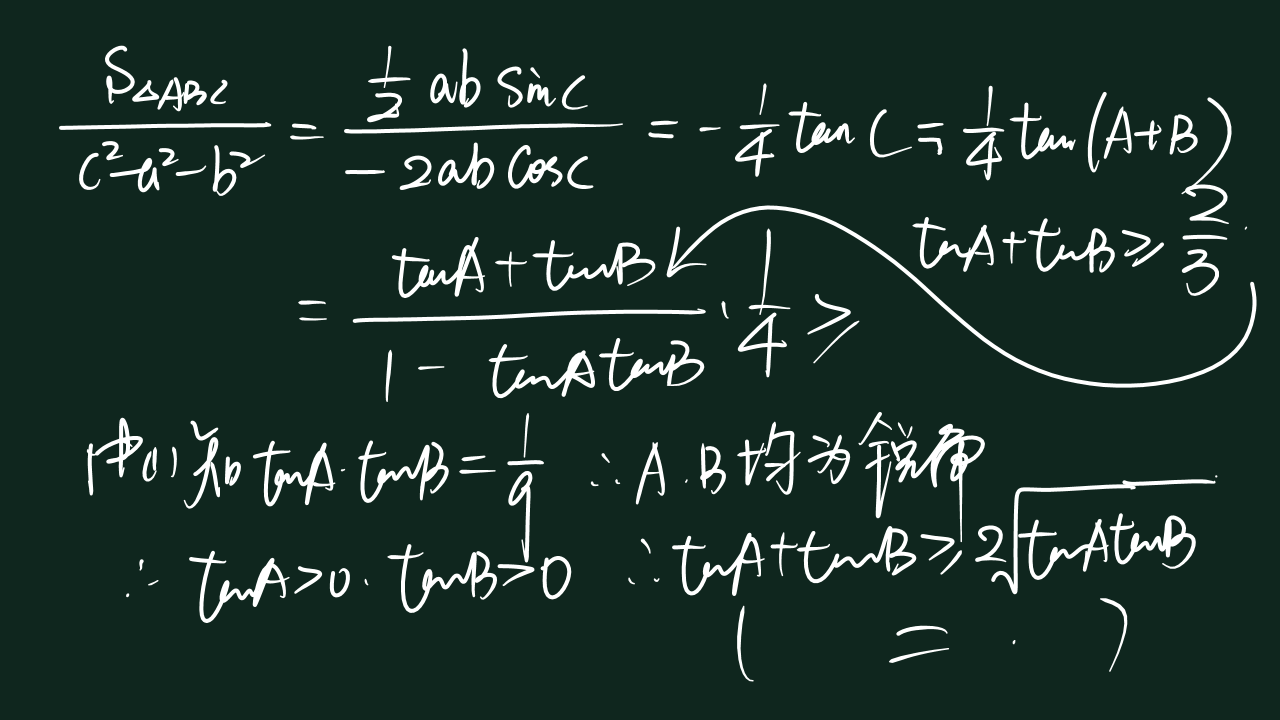 S△ABC / (c²-a²-b²) = (1/2 ab sinC) / (-2ab cosC) = -1/4 tan C = 1/4 tan(A+B)
tanA+tanB ≥ 2/3
= (tanA+tanB) / (1-tanAtanB) · 1/4 ≥
由(1)知 tanA·tanB = 1/9 ∴ A.B均为锐角
∴ tanA>0. tanB>0 ∴ tanA+tanB ≥ 2√(tanAtanB)
( = . )